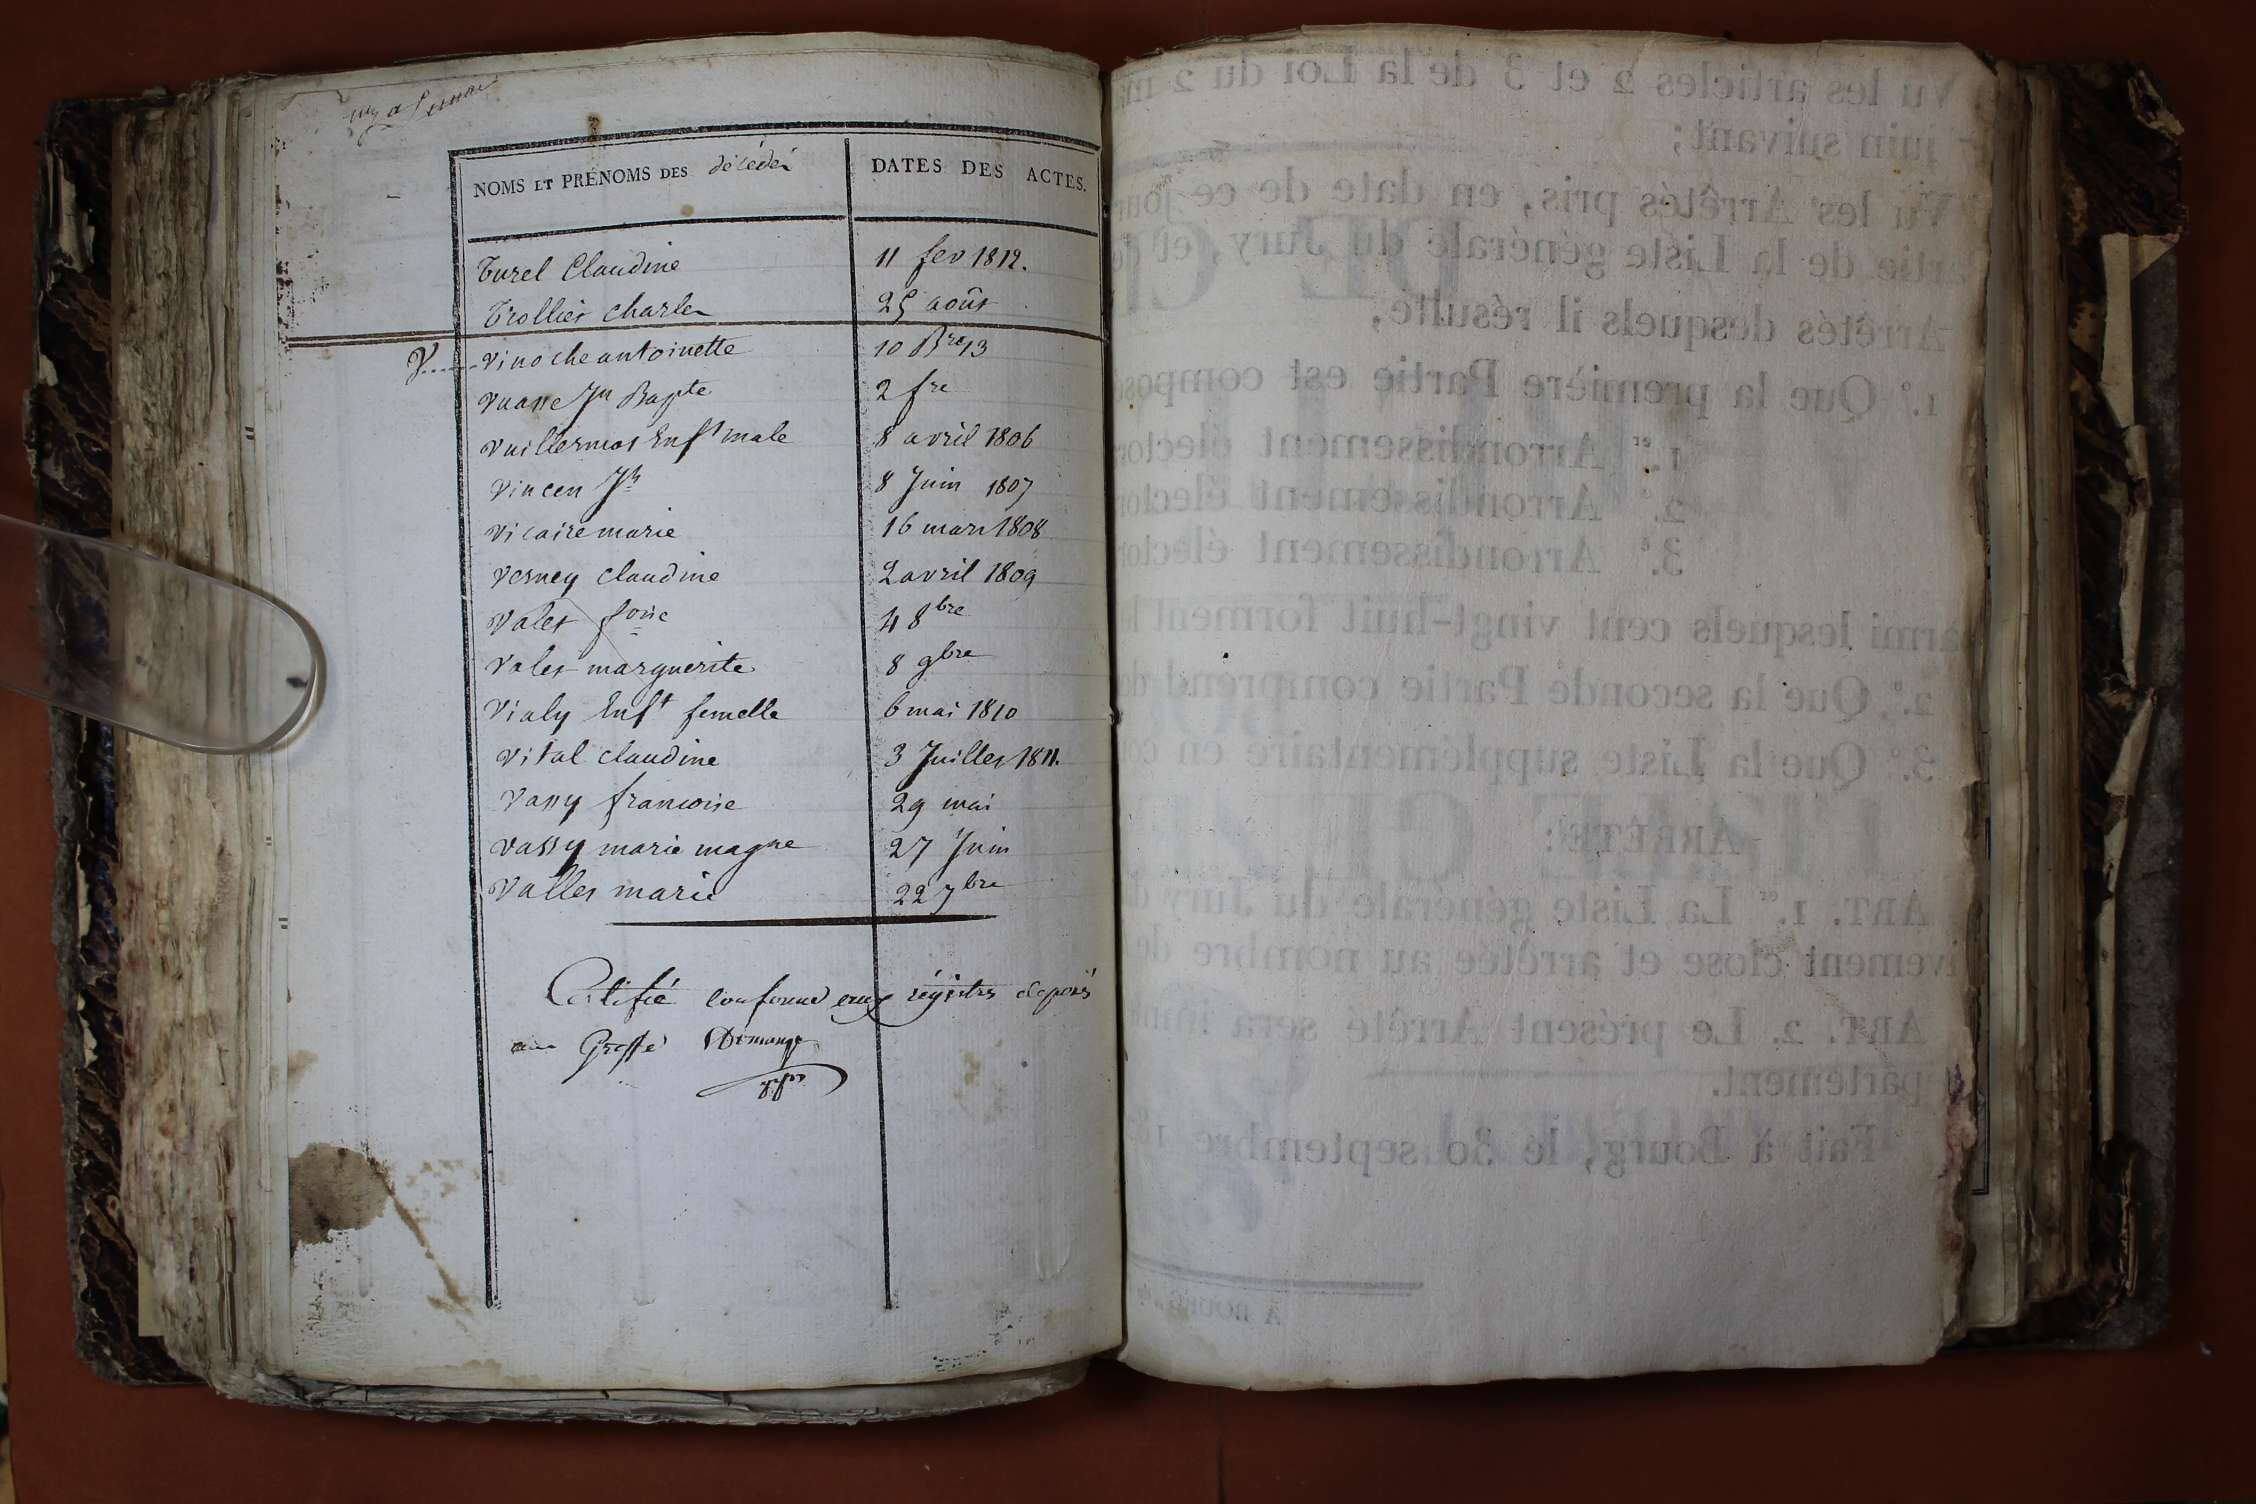 NOMS ET PRÉNOMS DES décédés
DATES DES ACTES.
Turel Claudine 11 fev 1812.
Trollier charles 25 août
V......Vinoche antoinette 10 Bre 13
Vuasse Jn Bapte 2 fre
Vuillermos Enft male 8 avril 1806
Vincen Jh 8 Juin 1807
Vicaire marie 16 mars 1808
Verney Claudine 2 avril 1809
Valet foise 4 8bre
Valet marguerite 8 9bre
Vialy Enft femelle 6 mai 1810
Vital Claudine 3 Juillet 1811.
Vassy francoise 29 mai
Vassy marie magne 27 Juin
Valles marie 22 7bre
Certifié conforme aux régistres déposés
au Greffe Demange
Vu les articles 2 et 3 de la Loi du 2 ma
juin suivant;
Vu les Arrêtés pris, en date de ce jour
rtie de la Liste générale du Jury, et de
Arrêtés desquels il résulte,
1.° Que la première Partie est compos
1.er Arrondissement élector
2.e Arrondissement élector
3.e Arrondissement élector
armi lesquels cent vingt-huit forment l
2.° Que la seconde Partie comprend de
3.° Que la Liste supplémentaire en co
ARRÊTE:
ART. 1.er La Liste générale du Jury d
ivement close et arrêtée au nombre de
ART. 2. Le présent Arrêté sera imm
partement.
Fait à Bourg, le 30 septembre 18
A BOURG